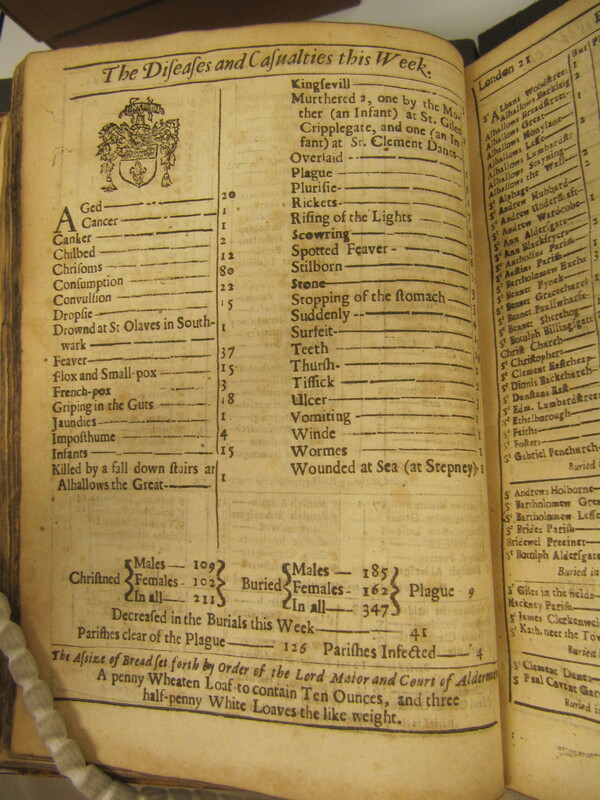 The Diſeaſes and Caſualties this Week.
AGed 20
Cancer 1
Canker 1
Chilbed 2
Chriſoms 12
Conſumption 80
Convulſion 22
Dropſie 15
Drownd at St Olaves in South-
wark 1
Feaver 37
Flox and Small-pox 15
French-pox 3
Griping in the Guts 18
Jaundies 1
Impoſthume 4
Infants 15
Killed by a fall down ſtairs at
Alhallows the Great 1
Kingſevill
Murthered 2, one by the Mo-
ther (an Infant) at St. Giles
Cripplegate, and one (an In-
fant) at St. Clement Danes
Overlaid
Plague
Pluriſie
Rickets
Riſing of the Lights
Scowring
Spotted Feaver
Stilborn
Stone
Stopping of the ſtomach
Suddenly
Surfeit
Teeth
Thurſh
Tiſſick
Ulcer
Vomiting
Winde
Wormes
Wounded at Sea (at Stepney) 1
Chriſtned Males 109 Females 102 In all 211
Buried Males 185 Females 162 In all 347
Plague 9
Decreaſed in the Burials this Week 41
Pariſhes clear of the Plague 126 Pariſhes Infected 4
The Aſsize of Bread ſet forth by Order of the Lord Maior and Court of Aldermen
A penny Wheaten Loaf to contain Ten Ounces, and three
half-penny White Loaves the like weight.
London 21
St Albans Woodſtreet
Alhallows Barking
Alhallows Breadſtreet
Alhallows Great
Alhallows Honylane
Alhallows Leſſe
Alhallows Lumbardſtr
Alhallows Stayning
Alhallows the Wall
St Alphage
St Andrew Hubbard
St Andrew Underſhaft
St Andrew Wardrobe
St Ann Alderſgate
St Ann Blackfryers
St Antholins Pariſh
St Auſtins Pariſh
St Bartholomew Exch
St Bennet Fynck
St Bennet Gracechurch
St Bennet Paulſwharf
St Bennet Sherehog
St Botolph Billingſgate
Chriſt Church
St Chriſtophers
St Clement Eaſtcheap
St Dionis Backchurch
St Dunſtans Eaſt
St Edm. Lumbardſtreet
St Ethelborough
St Faiths
St Foſters
St Gabriel Fenchurch
Buried in
St Andrews Holborne
St Bartholomew Great
St Bartholomew Leſſe
St Brides Pariſh
Bridewel Precinct
St Botolph Alderſgate
Buried in
St Giles in the fields
Hackney Pariſh
St James Clerkenwel
St Kath. neer the Tow
Buried in
St Clement Danes
St Paul Covent Gar
Buried in